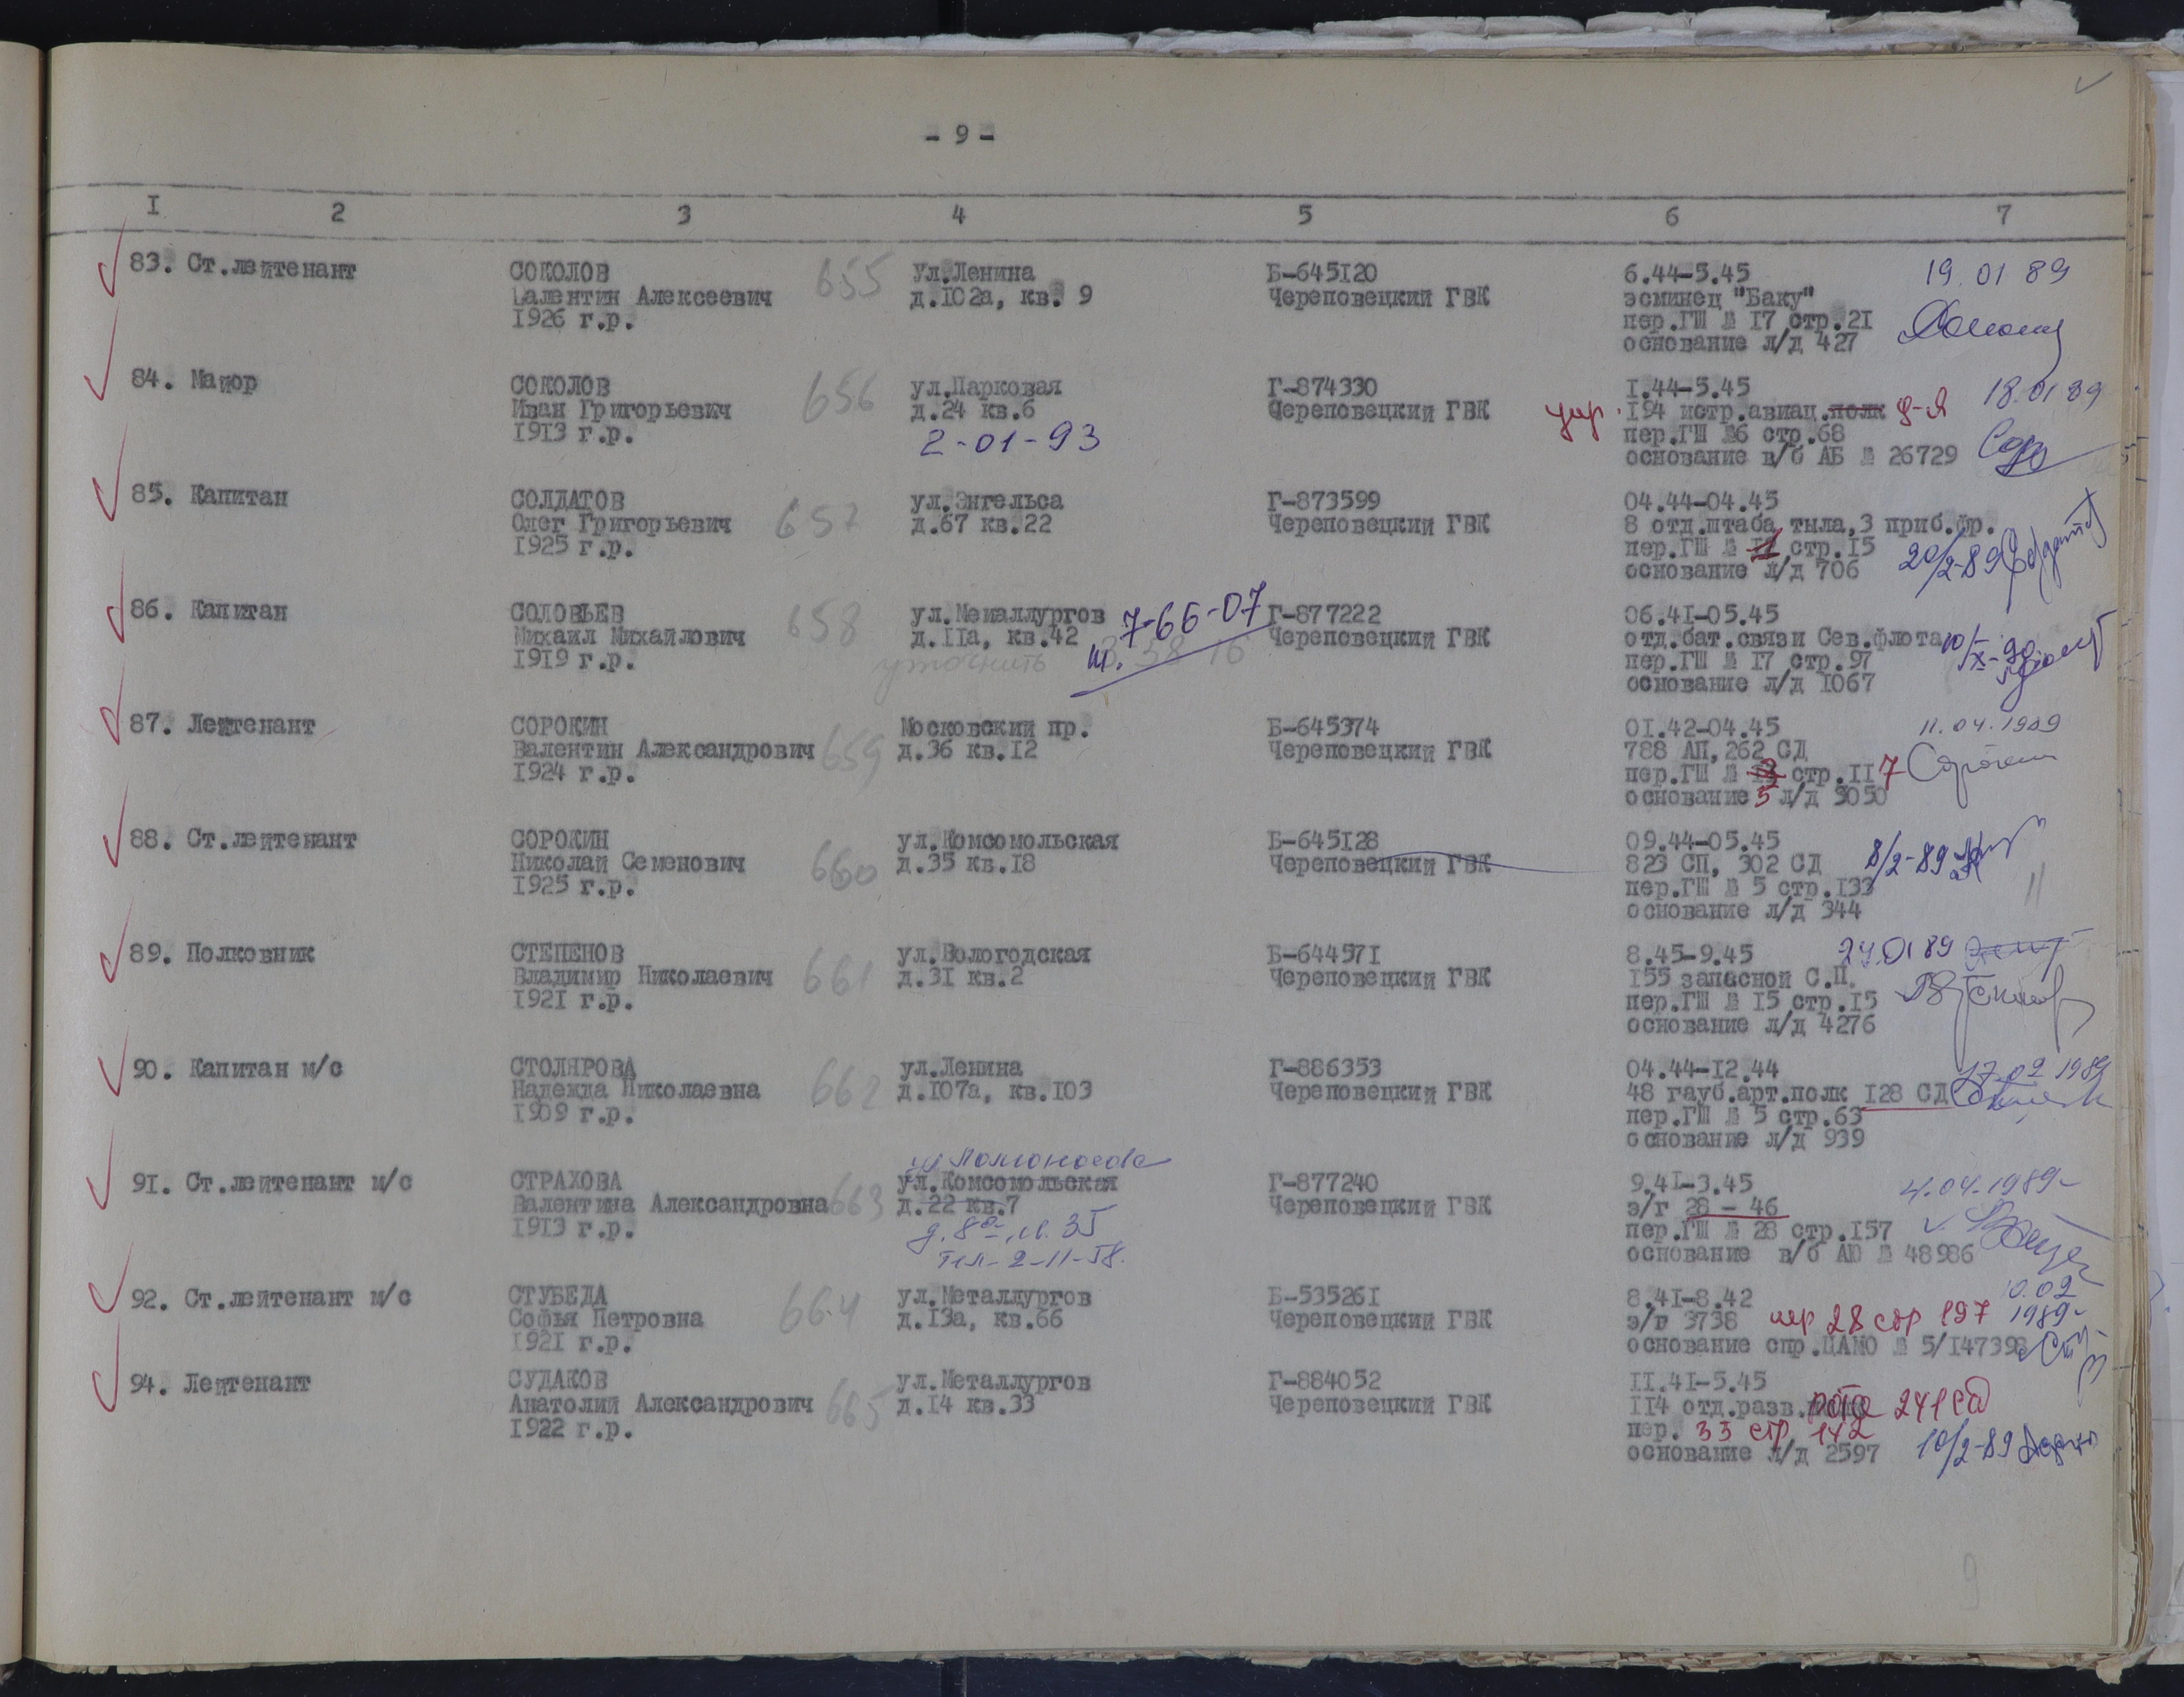 - 9 -
I 2 3 4 5 6 7
83. Ст.лейтенант СОКОЛОВ 655 Ул.Ленина Б-645I20 6.44-5.45 19.01 89
Валентин Алексеевич д.I02а, кв. 9 Череповецкий ГВК эсминец "Баку"
I926 г.р. пер.ГШ № I7 стр.2I
основание л/д 427
84. Майор СОКОЛОВ 656 ул.Парковая Г-874330 I.44-5.45 18.01 89
Иван Григорьевич д.24 кв.6 Череповецкий ГВК упр. I94 истр.авиац.полк д-я
I9I3 г.р. 2-01-93 пер.ГШ №6 стр.68
основание в/б АБ № 26729
85. Капитан СОЛДАТОВ 657 ул.Энгельса Г-873599 04.44-04.45
Олег Григорьевич д.67 кв.22 Череповецкий ГВК 8 отд.штаба тыла,3 приб.фр.
I925 г.р. пер.ГШ № стр.I5 20/2-89
основание л/д 706
86. Капитан СОЛОВЬЕВ 658 ул.Металлургов 7-66-07 Г-877222 06.4I-05.45
Михаил Михайлович д.IIа, кв.42 Череповецкий ГВК отд.бат.связи Сев.флота 10/X-90
I9I9 г.р. уточнить пер.ГШ № I7 стр.97
основание л/д I067
87. Лейтенант СОРОКИН 659 Московский пр. Б-645374 0I.42-04.45 11.04.1989
Валентин Александрович д.36 кв.I2 Череповецкий ГВК 788 АП,262 СД
I924 г.р. пер.ГШ № стр.II7 Сорокин
основание 5 л/д 3050
88. Ст.лейтенант СОРОКИН 660 ул.Комсомольская Б-645I28 09.44-05.45
Николай Семенович д.35 кв.I8 Череповецкий ГВК 823 СП, 302 СД 8/2-89
I925 г.р. пер.ГШ № 5 стр.I33
основание л/д 344
89. Полковник СТЕПЕНОВ 661 ул.Вологодская Б-64457I 8.45-9.45 24.01 89
Владимир Николаевич д.3I кв.2 Череповецкий ГВК I55 запасной С.П.
I92I г.р. пер.ГШ № I5 стр.I5
основание л/д 4276
90. Капитан м/с СТОЛЯРОВА 662 ул.Ленина Г-886353 04.44-I2.44 17.02 1989
Надежда Николаевна д.I07а, кв.I03 Череповецкий ГВК 48 гауб.арт.полк I28 СД
I909 г.р. пер.ГШ № 5 стр.63
основание л/д 939
ул Ломоносова
9I. Ст.лейтенант м/с СТРАХОВА 663 ул.Комсомольская Г-877240 9.4I-3.45 4.04.1989
Валентина Александровна д.22 кв.7 Череповецкий ГВК э/г 28 - 46
I9I3 г.р. д.8а, кв. 35 пер.ГШ № 28 стр.I57
тел-2-11-58. основание в/б АЮ № 48986
92. Ст.лейтенант м/с СТУБЕДА 664 ул.Металлургов Б-53526I 8.4I-8.42 10.02
Софья Петровна д.I3а, кв.66 Череповецкий ГВК э/г 3738 пер 28 стр 197 1989
I92I г.р. основание спр.ЦАМО № 5/I47398
94. Лейтенант СУДАКОВ 665 ул.Металлургов Г-884052 II.4I-5.45
Анатолий Александрович д.I4 кв.33 Череповецкий ГВК II4 отд.разв.рота 241 сд
I922 г.р. пер. 33 стр 142
основание л/д 2597 10/2-89
9